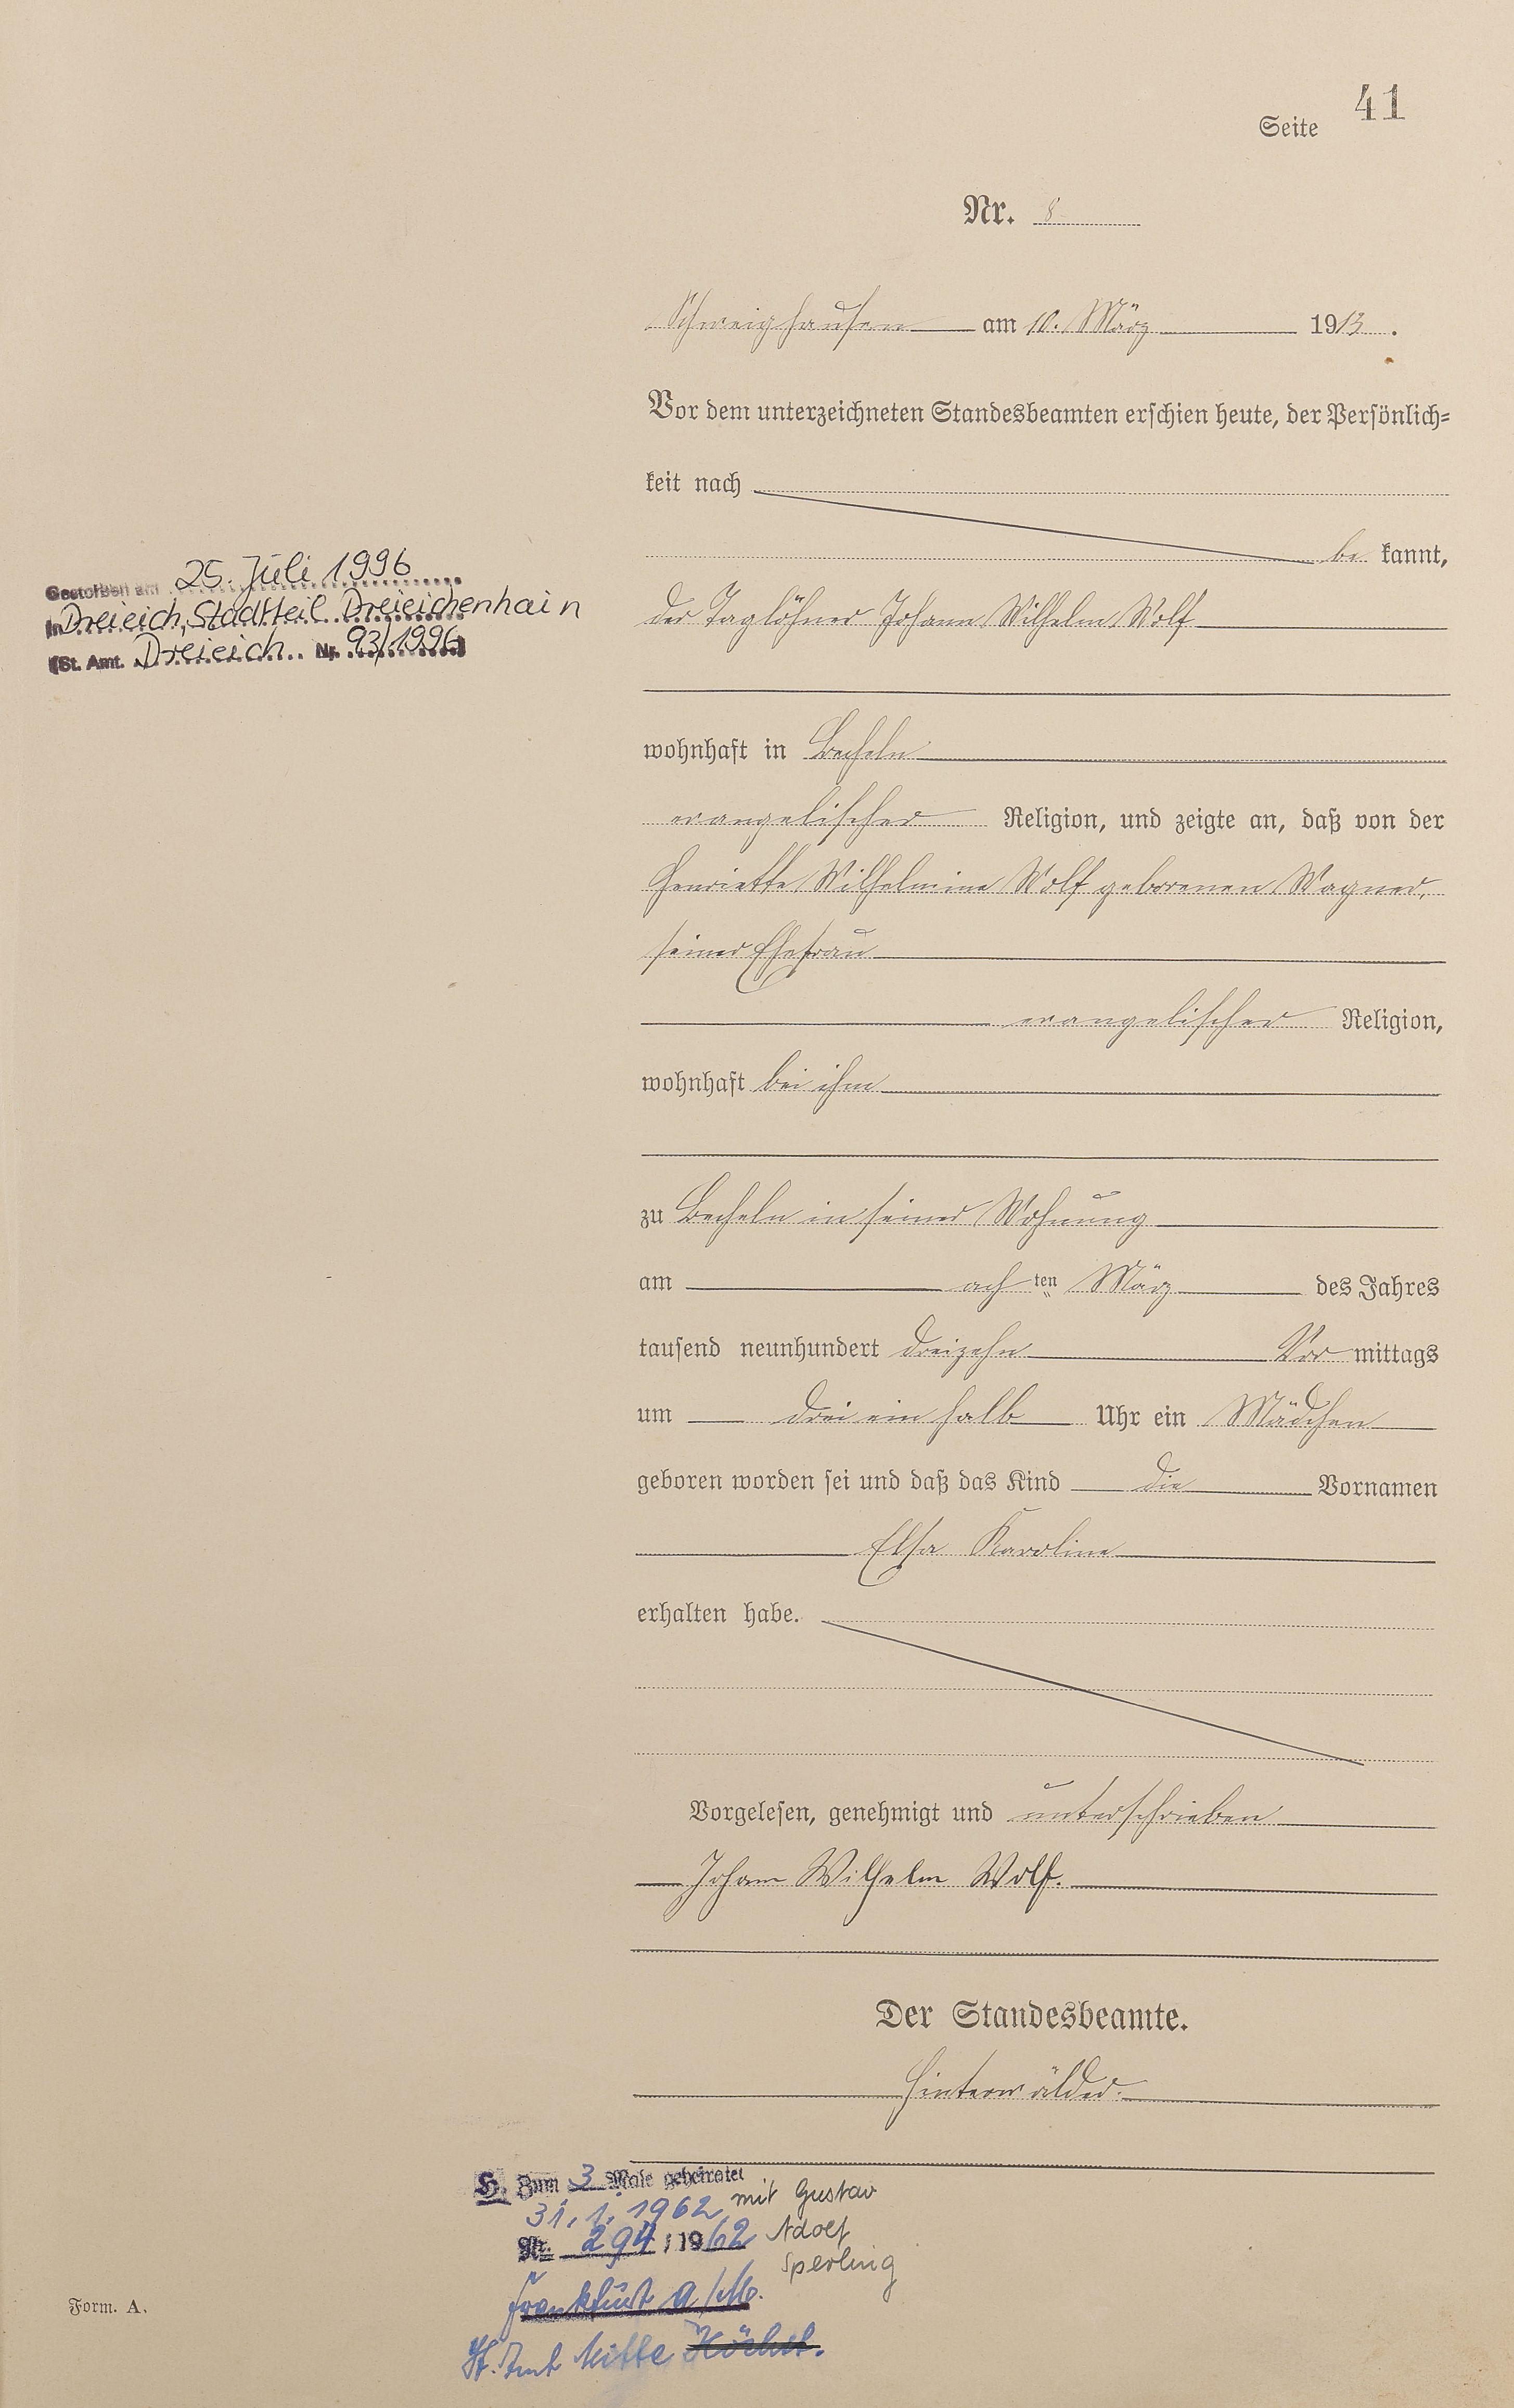 Seite 41
Nr. 8
Schweighausen am 10. März 1913.
Vor dem unterzeichneten Standesbeamten erschien heute, der Persönlich=
keit nach
be kannt,
der Taglöhner Johann Wilhelm Wolf
wohnhaft in Becheln
evangelischer Religion, und zeigte an, daß von der
Henriette Wilhelmine Wolf geborenen Wagner,
seiner Ehefrau
evangelischer Religion,
wohnhaft bei ihm
zu Becheln in seiner Wohnung
am ach ten März des Jahres
tausend neunhundert dreizehn Vor mittags
um drei ein halb Uhr ein Mädchen
geboren worden sei und daß das Kind die Vornamen
Elsa Karoline
erhalten habe.
Vorgelesen, genehmigt und unterschrieben
Johann Wilhelm Wolf.
Der Standesbeamte.
Hinterwälder.
Gestorben am 25. Juli 1996
in Dreieich, Stadtteil Dreieichenhain
(St. Amt. Dreieich Nr. 93/1996)
H. Zum 3 Male geheiratet
31.1.1962 mit Gustav
Nr. 294/1962 Adolf
Sperling
Frankfurt a/M.
St. Amt Mitte Höchst.
Form. A.